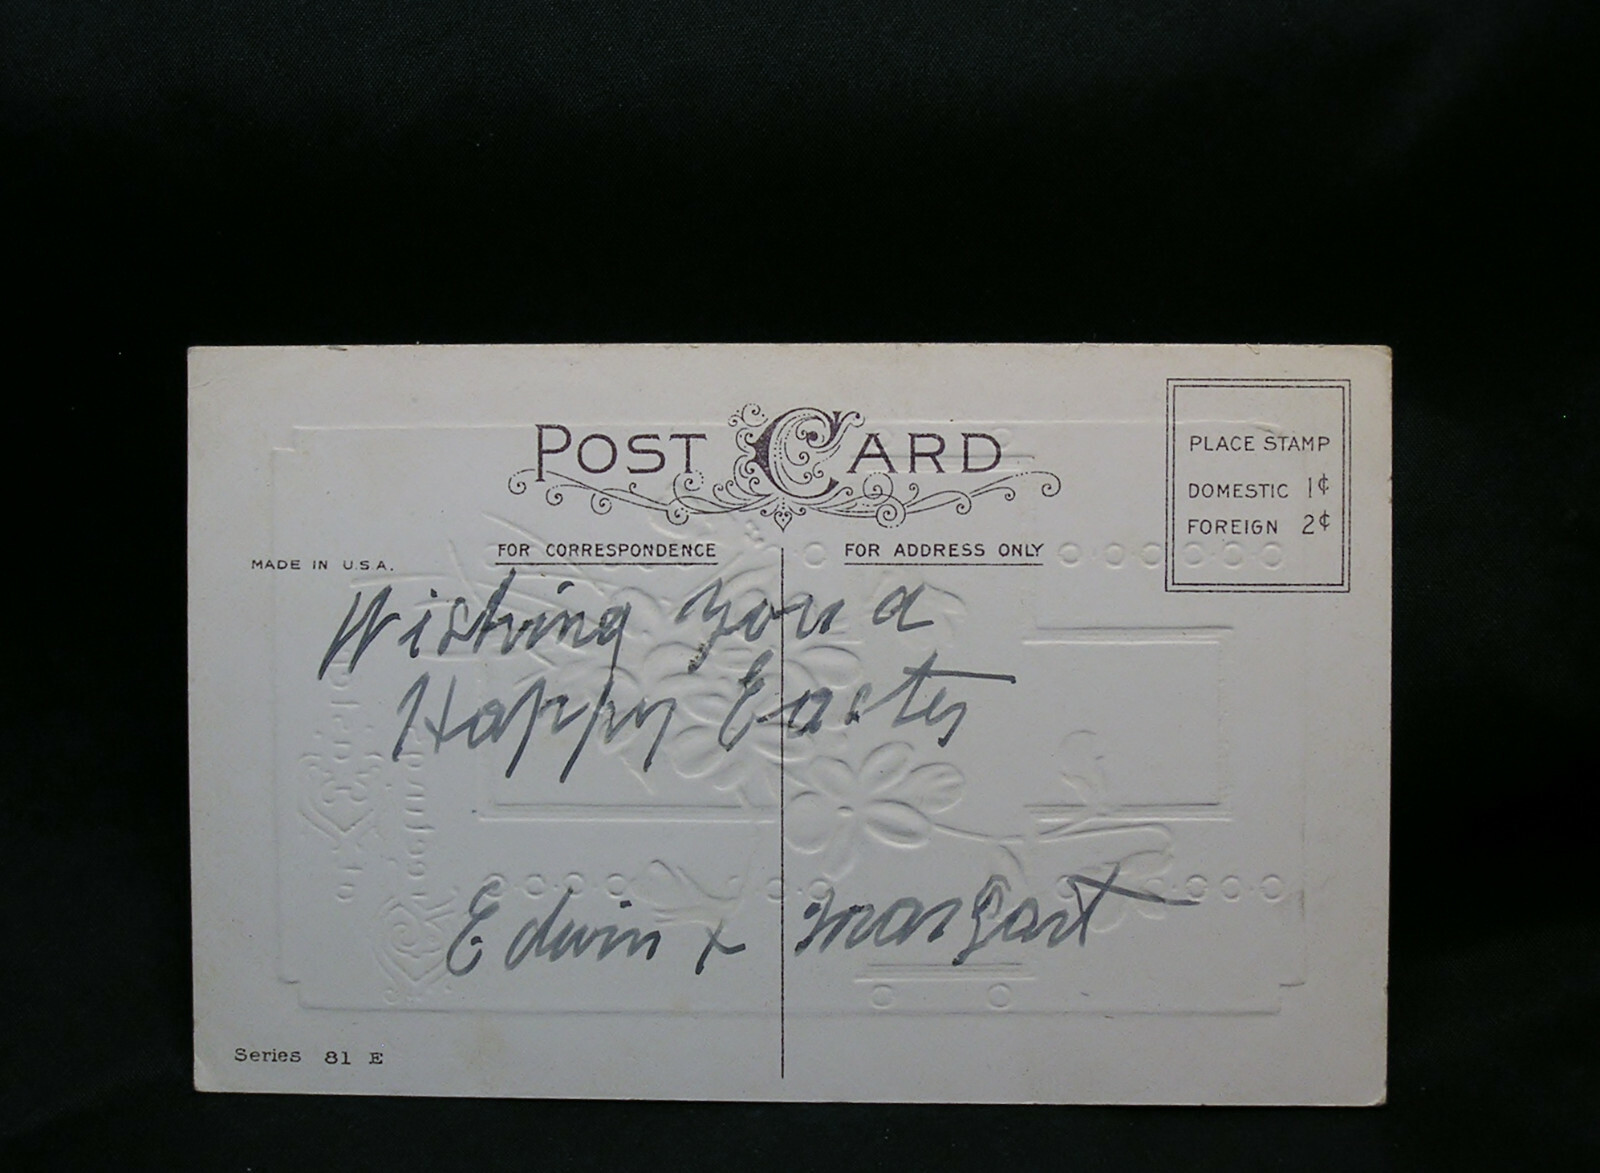 POST CARD
PLACE STAMP
DOMESTIC 1¢
FOREIGN 2¢
FOR CORRESPONDENCE
FOR ADDRESS ONLY
MADE IN U.S.A.
Wishing you a
Happy Easter
Edwin + Margart
Series 81 E